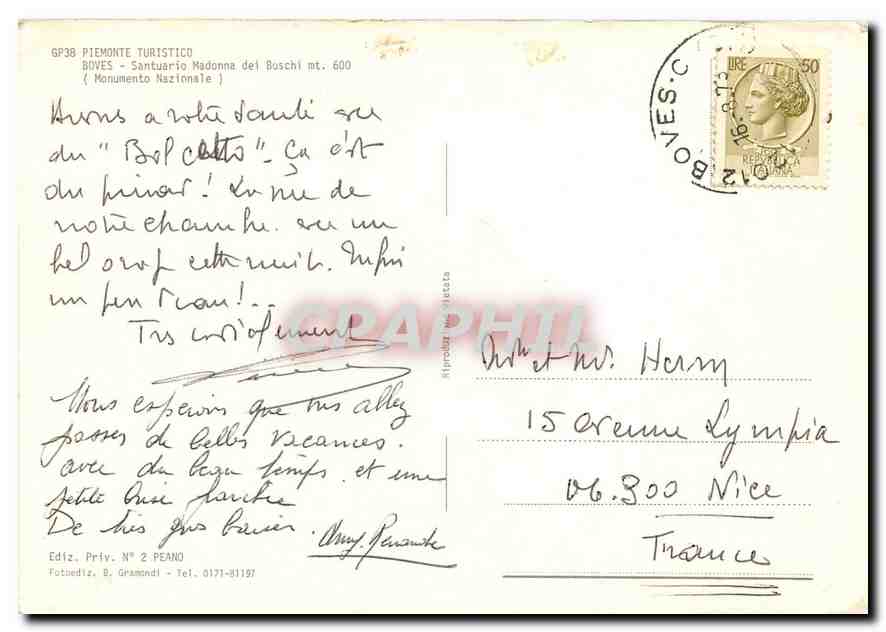 GP38 PIEMONTE TURISTICO
BOVES - Santuario Madonna dei Boschi mt. 600
( Monumento Nazionale )
a votre santé avec
du " - Ça c'est
du pinard ! La vue de
notre chambre avec un
bel orage cette nuit.
un peu d'eau !..
Très cordialement
Nous espérons que vous allez
passer de belles vacances.
avec du beau temps et une
petite brise fraîche
De très gros baisers.
Ediz. Priv. N° 2 PEANO
Fotoediz. B. Gramondi - Tel. 0171-81197
Riproduz. Vietata
CPAPHIL
BOVES · C
16.8.7
012
LIRE 50
REPVBBLICA
ITALIANA
Mme et Mr. Herm
15 avenue Lympia
06.300 Nice
France